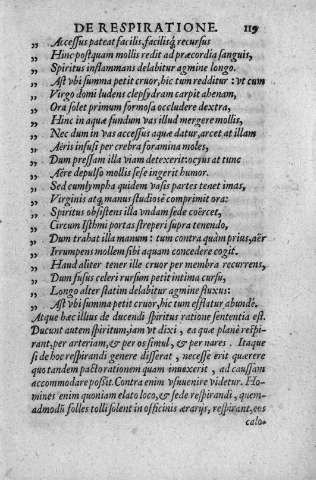 DE RESPIRATIONE. 119
„ Accessus pateat facilis, facilisq; recursus
„ Hinc postquam mollis redit ad præcordia sanguis,
„ Spiritus inflammans delabitur agmine longo.
„ Ast vbi summa petit cruor, hic tum redditur: vt cum
„ Virgo domi ludens clepsydram carpit ahenam,
„ Ora solet primum formosa occludere dextra,
„ Hinc in aquæ fundum vas illud mergere mollis,
„ Nec dum in vas accessus aquæ datur, arcet at illam
„ Aëris infusi per crebra foramina moles,
„ Dum pressam illa viam detexerit: ocyus at tunc
„ Aëre depulso mollis sese ingerit humor.
„ Sed cum lympha quidem vasis partes tenet imas,
„ Virginis atq; manus studiosè comprimit ora:
„ Spiritus obsistens illa vndam sede coërcet,
„ Circum Isthmi portas streperi supra tenendo,
„ Dum trahat illa manum: tum contra quàm prius, aër
„ Irrumpens mollem sibi aquam concedere cogit.
„ Haud aliter tener ille cruor per membra recurrens,
„ Dum fusus celeri rursùm petit intima cursu,
„ Longo aliter statim delabitur agmine fluxus:
„ Ast vbi summa petit cruor, hic tum efflatur abundè.
Atque hæc illius de ducendi spiritus ratione sententia est.
Ducunt autem spiritum, iam vt dixi, ea quæ planè respi-
rant, per arteriam, & per os simul, & per nares. Itaque
si de hoc respirandi genere disserat, necesse erit quærere
quo tandem pacto rationem quam inuexerit, ad caussam
accommodare possit. Contra enim vsuuenire videtur. Ho-
mines enim quoniam elato loco, & sede respirandi, quem-
admodũ folles tolli solent in officinis ærarijs, respirant, eos
calo-